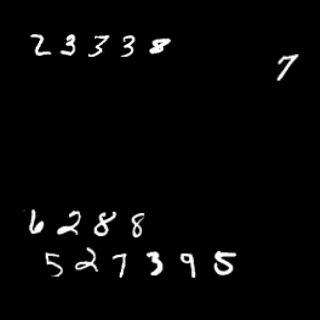 23338
7
6288
527395